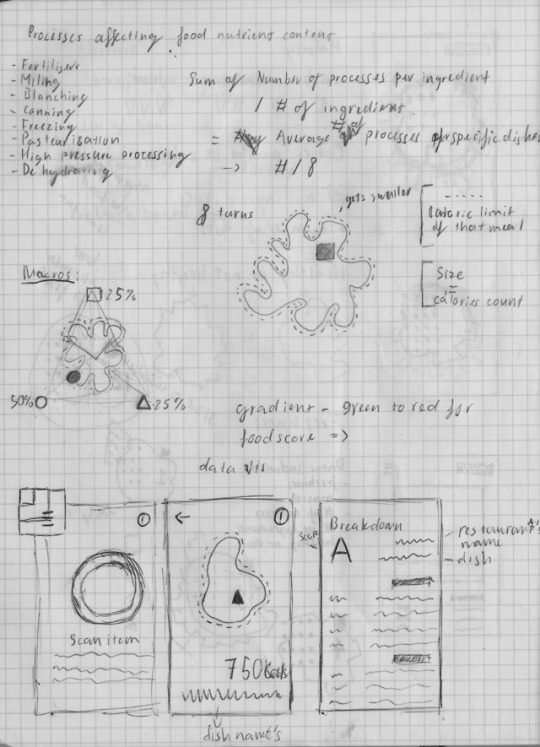 Processes affecting food nutrient content
- Fertilisers
- Milling
- Blanching
- Canning
- Freezing
- Pasteurisation
- High pressure processing
- Dehydrating
Sum of Number of processes per ingredient
/ # of ingredient
= Average # of processes specific dishes
-> # / 8
8 turns
gets smaller
Caloric limit
of that meal
Size
=
calories count
Macros:
25%
50%
25%
gradient - green to red for
foodscore =>
data vis
Scan item
750 kcals
dish name's
Breakdown
score
A
restaurant's
name
dish